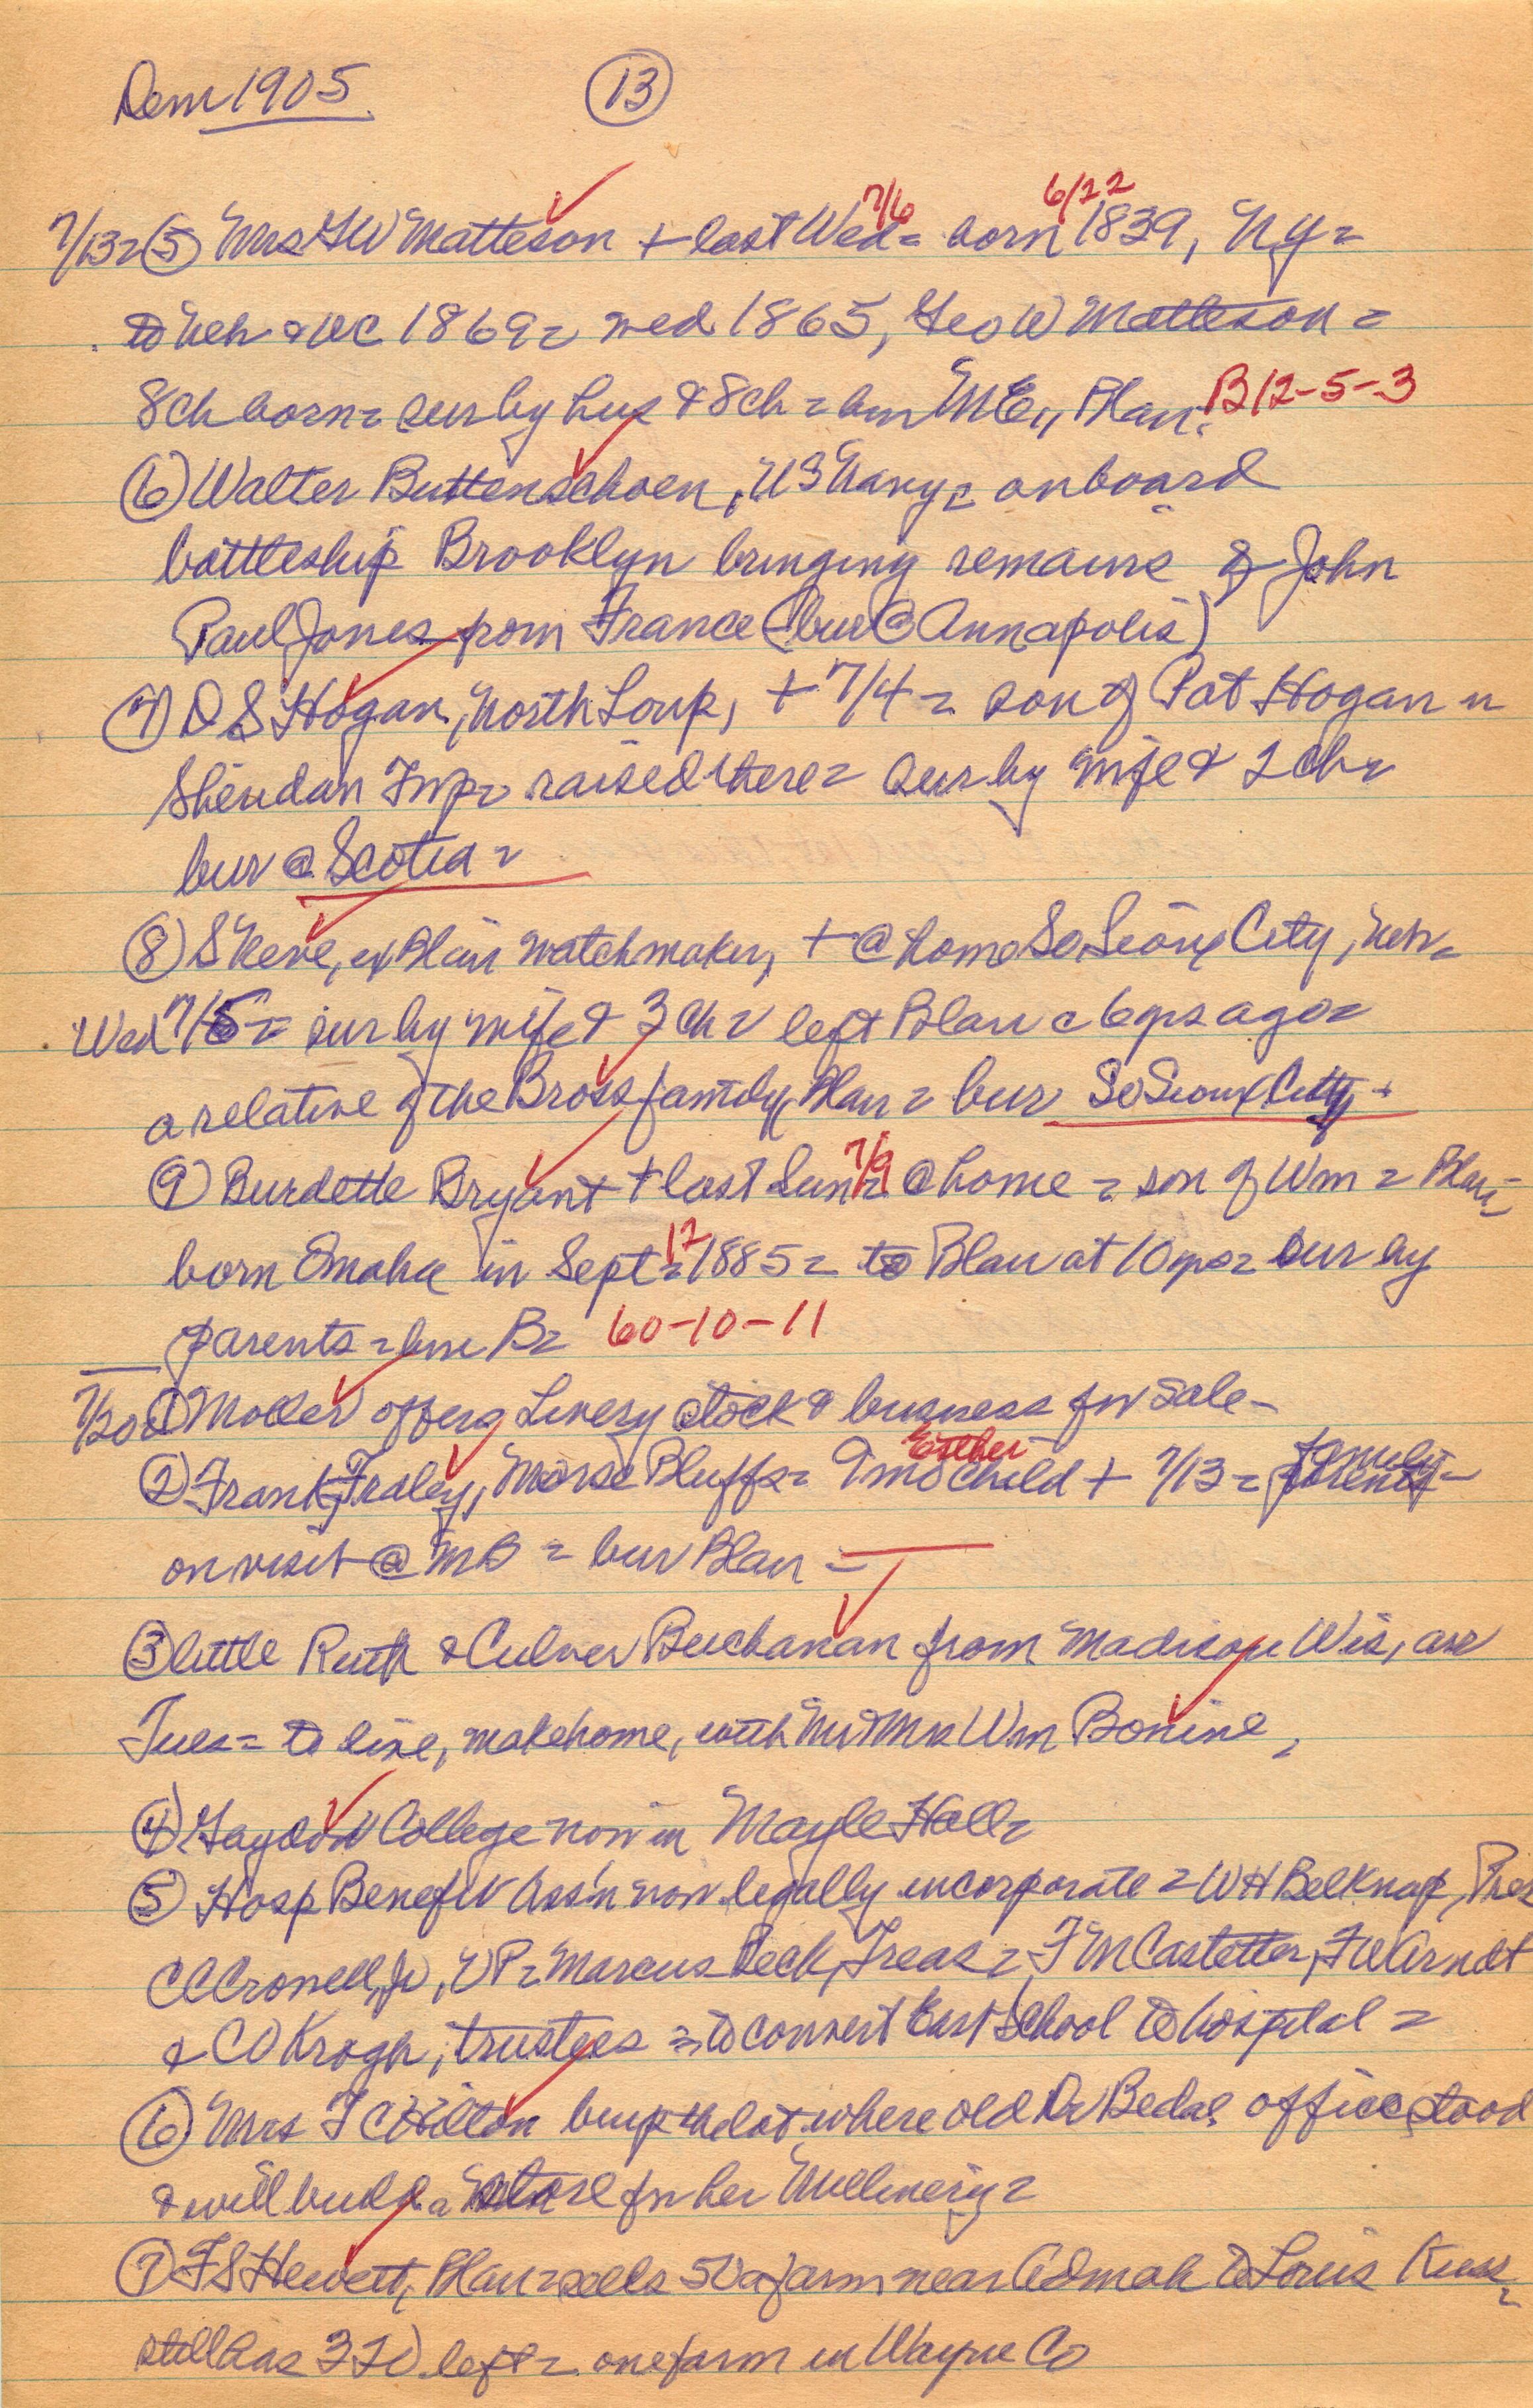 Dem 1905 (13)
7/13 = (5) Mrs GW Matteson + last Wed 7/6 = born 6/22 1839, NY =
to Neb & WC 1869 = wed 1865, Geo W Matteson =
8ch born = sur by hus & 8ch = bur ME,, Blair = B12-5-3
(6) Walter Buttenschoen, US Navy = onboard
battleship Brooklyn bringing remains of John
Paul Jones from France (bur @ Annapolis)
(7) D S Hogan, North Loup, + 7/4 = son of Pat Hogan =
Sheridan Twp = raised there = sur by wife & 2 ch =
bur @ Scotia =
(8) S Neve, ex Blair watchmaker, + @ home So Sioux City, Neb =
Wed 7/5 = sur by wife & 3 ch = left Blair c 6 yrs ago =
a relative of the Bross family, Blair = bur So Sioux City =
(9) Burdette Bryant + last Sun 7/9 = @ home = son of Wm = Blair =
born Omaha in Sept 12 = 1885 = to Blair at 10 yrs = sur by
parents = bur B = 60-10-11
7/20 = (1) Moller offers Livery stock & business for sale -
(2) Frank Fraley, Morse Bluffs = 9 mo Esther child + 7/13 = family =
on visit @ MB = bur Blair =
(3) little Ruth & Culver Buchanan from Madison Wis, arr
Tues = to live, make home, with Mr & Mrs Wm Bonine,
(4) College now in Mayle Hall =
(5) Hosp Benefit Ass'n now legally incorporate = WH Belknap, Pres
CC Crowell, Jr, VP = Marcus Beck, Treas = FM Castetter, FW Arndt
& CO Krogh, trustees = to convert East School to hospital =
(6) Mrs F C Hilton buys the lot where old Dr Bedal office stood
& will build a store for her Millinery =
(7) FS Hewett, Blair = sells 50 a farm near Admah to Louis =
still has 320 left = one farm in Wayne Co